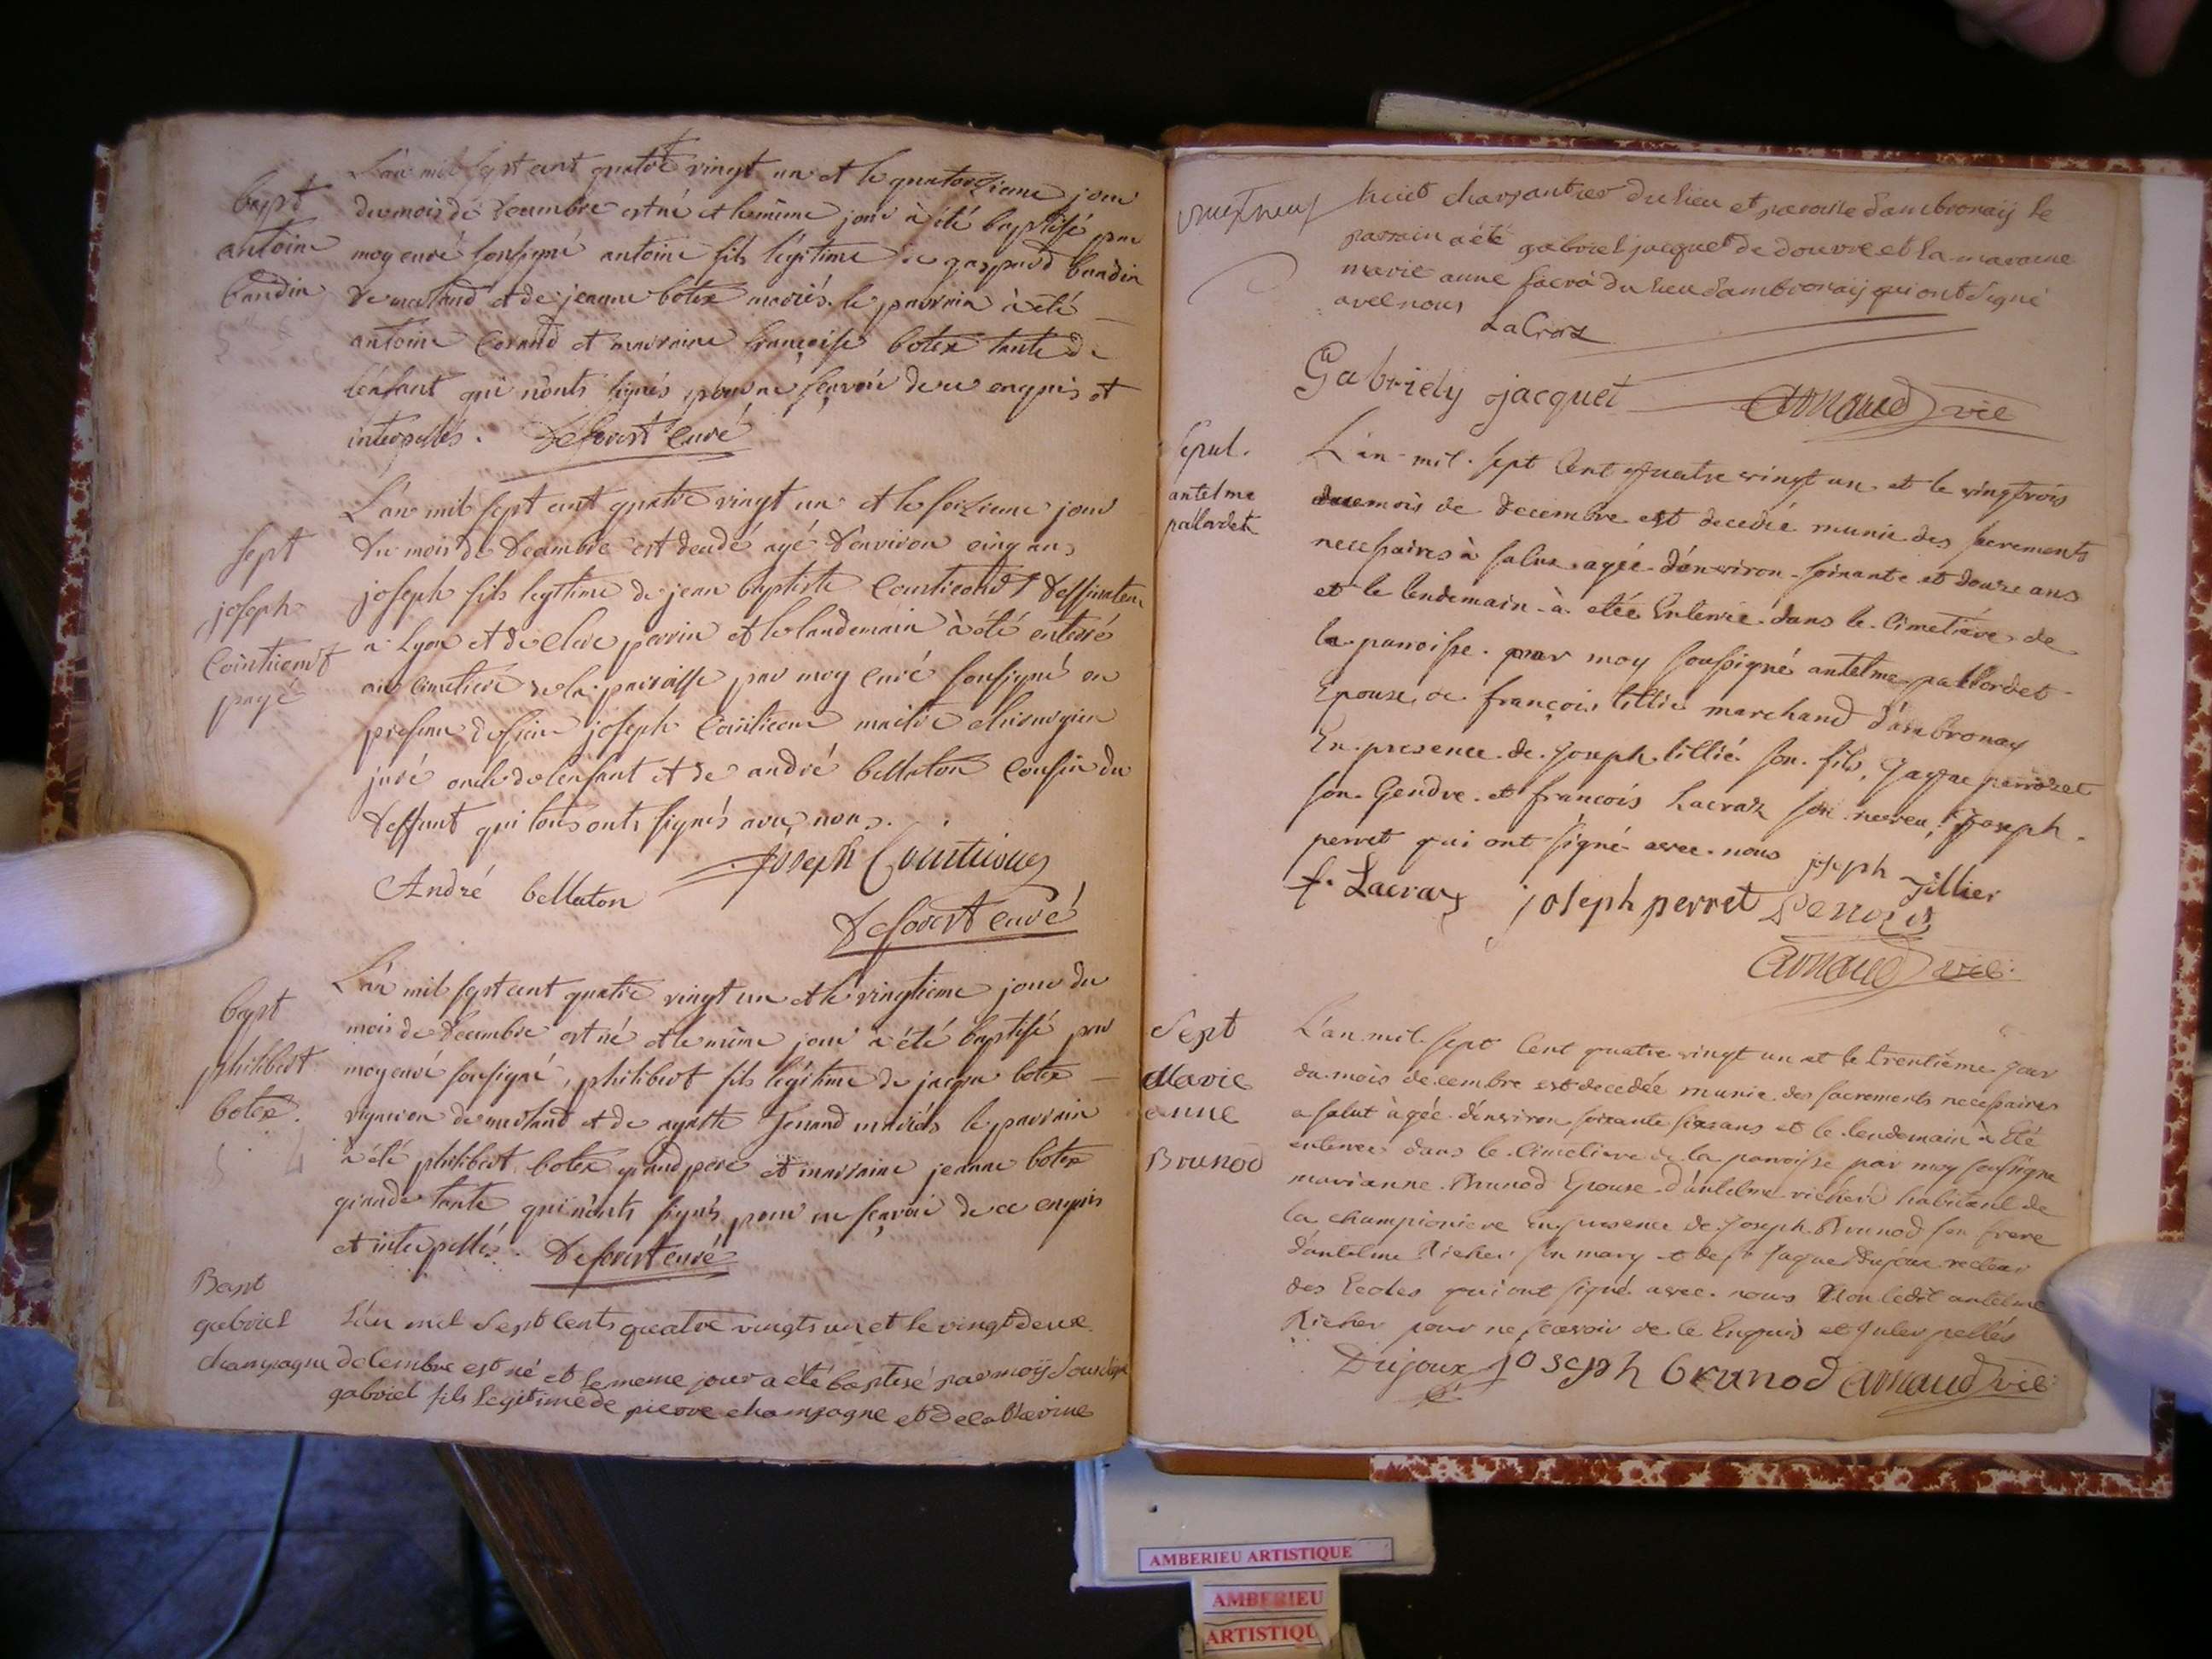 bapt
antoine
baudin
L'an mil sept cent quatre vingt un et le quatorzieme jour
du mois de decembre est né et le même jour à été baptisé par
moy curé sousigné antoine fils légitime de gaspard baudin
de et de jeanne botex mariés. le parrain à été
antoine et marraine françoise botex tante de
l'enfant qui n'onts signés pour ne sçavoir de ce enquis et
interpellés. Deforest curé
sept
joseph
payé
L'an mil sept cent quatre vingt un et le seizieme jour
du mois de decembre est decedé agé d'environ cinq ans
joseph fils legitime de jean baptiste
a Lyon et de perrin et le landemain à été enterré
au cimetiere de la paroisse par moy curé sousigné en
presence de sieur joseph maitre chirurgien
juré oncle de l'enfant et de andré bellaton cousin du
deffunt qui tous onts signés avec nous.
André bellaton joseph
Deforest curé
bapt
philibert
botex.
L'an mil sept cent quatre vingt un et le vingtieme jour du
mois de decembre est né et le même jour à été baptisé par
moy curé sousigné, philibert fils légitime de jacque botex
vigneron de et de agatte mariés le parrain
à été philibert botex grand pere et marraine jeanne botex
grande tante qui n'onts signés pour ne sçavoir de ce enquis
et interpellés. Deforest curé
Bapt
gabriel
champagne
L'an mil Sept cents quatre vingts un et le vingt deux
decembre est né et le meme jour a été baptisé par moÿ Sousigné
gabriel fils Legitime de pierre champagne et de catherine
huit charpantier du lieu et paroisse d'ambronaÿ le
parrain a été gabriel jacquet de douvre et la maraine
marie anne Lacra du lieu d'ambronaÿ qui ont Signé
avec nous
LaCroz
Gabriely jacquet arnaud vic
Sepul.
antelme
palordet
L'an mil. sept Cent quatre vingt un et le vingtrois
du mois de decembre est decedéé munie des sacrements
necessaires à salut agéé d'environ soixante et douze ans
et le lendemain à etéé Enterrée dans le Cimetiere de
la parroisse. par moy soussigné antelme pallordet
Epouse de françois tillié marchand d'ambronay
En presence de. Joseph tillié son fils, Jaque perrozet
son Gendre. et francois Lacraz son neveu, joseph
perret qui ont signé avec nous joseph Jillier
f. Lacraz joseph perret
arnaud vic.
Sept
Marie
anne
Brunod
L'an mil sept Cent quatre vingt un et le trentiéme jour
du mois decembre est decedéé munie des sacrements necessaires
a salut àgéé d'environ soixante six ans et le lendemain à Eté
enterrée dans le Cimetiere de la parroisse par moy sousigne
marianne Brunod Epouse d'antelme richerd habitant de
la championiere En presence de Joseph Brunod son frere
d'antelme Richer son mary et de Jaque Dujoux recteur
des Ecoles qui ont signé avec nous Non ledit antelme
Richer pour ne sçavoir de ce Enquis et Interpellés
Dujoux joseph brunod arnaud vic
AMBERIEU ARTISTIQUE
AMBERIEU
ARTISTIQU